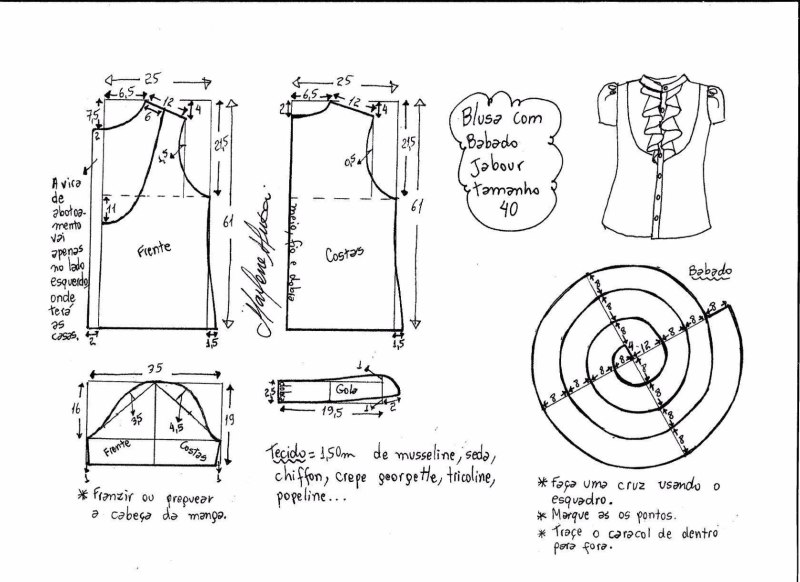 25
6,5
12
7,5
6
4
2
1,5
21,5
61
11
Frente
A vira
de
abotoa-
mento
vai
apenas
no lado
esquerdo
onde
terá
as
casas.
2
1,5
25
6,5
12
2
4
0,5
21,5
61
meio, fio e dobra
Costas
1,5
Marlene Mukai
Blusa com
Babado
Jabour
tamanho
40
Babado
8
8
8
8
8
8
8
4
12
8
8
8
8
8
8
8
8
8
35
16
3,5
4,5
19
Frente
Costas
1
1
* Franzir ou preguear
a cabeça da manga.
1
2,5
dobra
Gola
19,5
1
2
Tecido = 1,50m de musseline, seda,
chiffon, crepe georgette, tricoline,
popeline...
* Faça uma cruz usando o
esquadro.
* Marque as os pontos.
* Traçe o caracol de dentro
para fora.